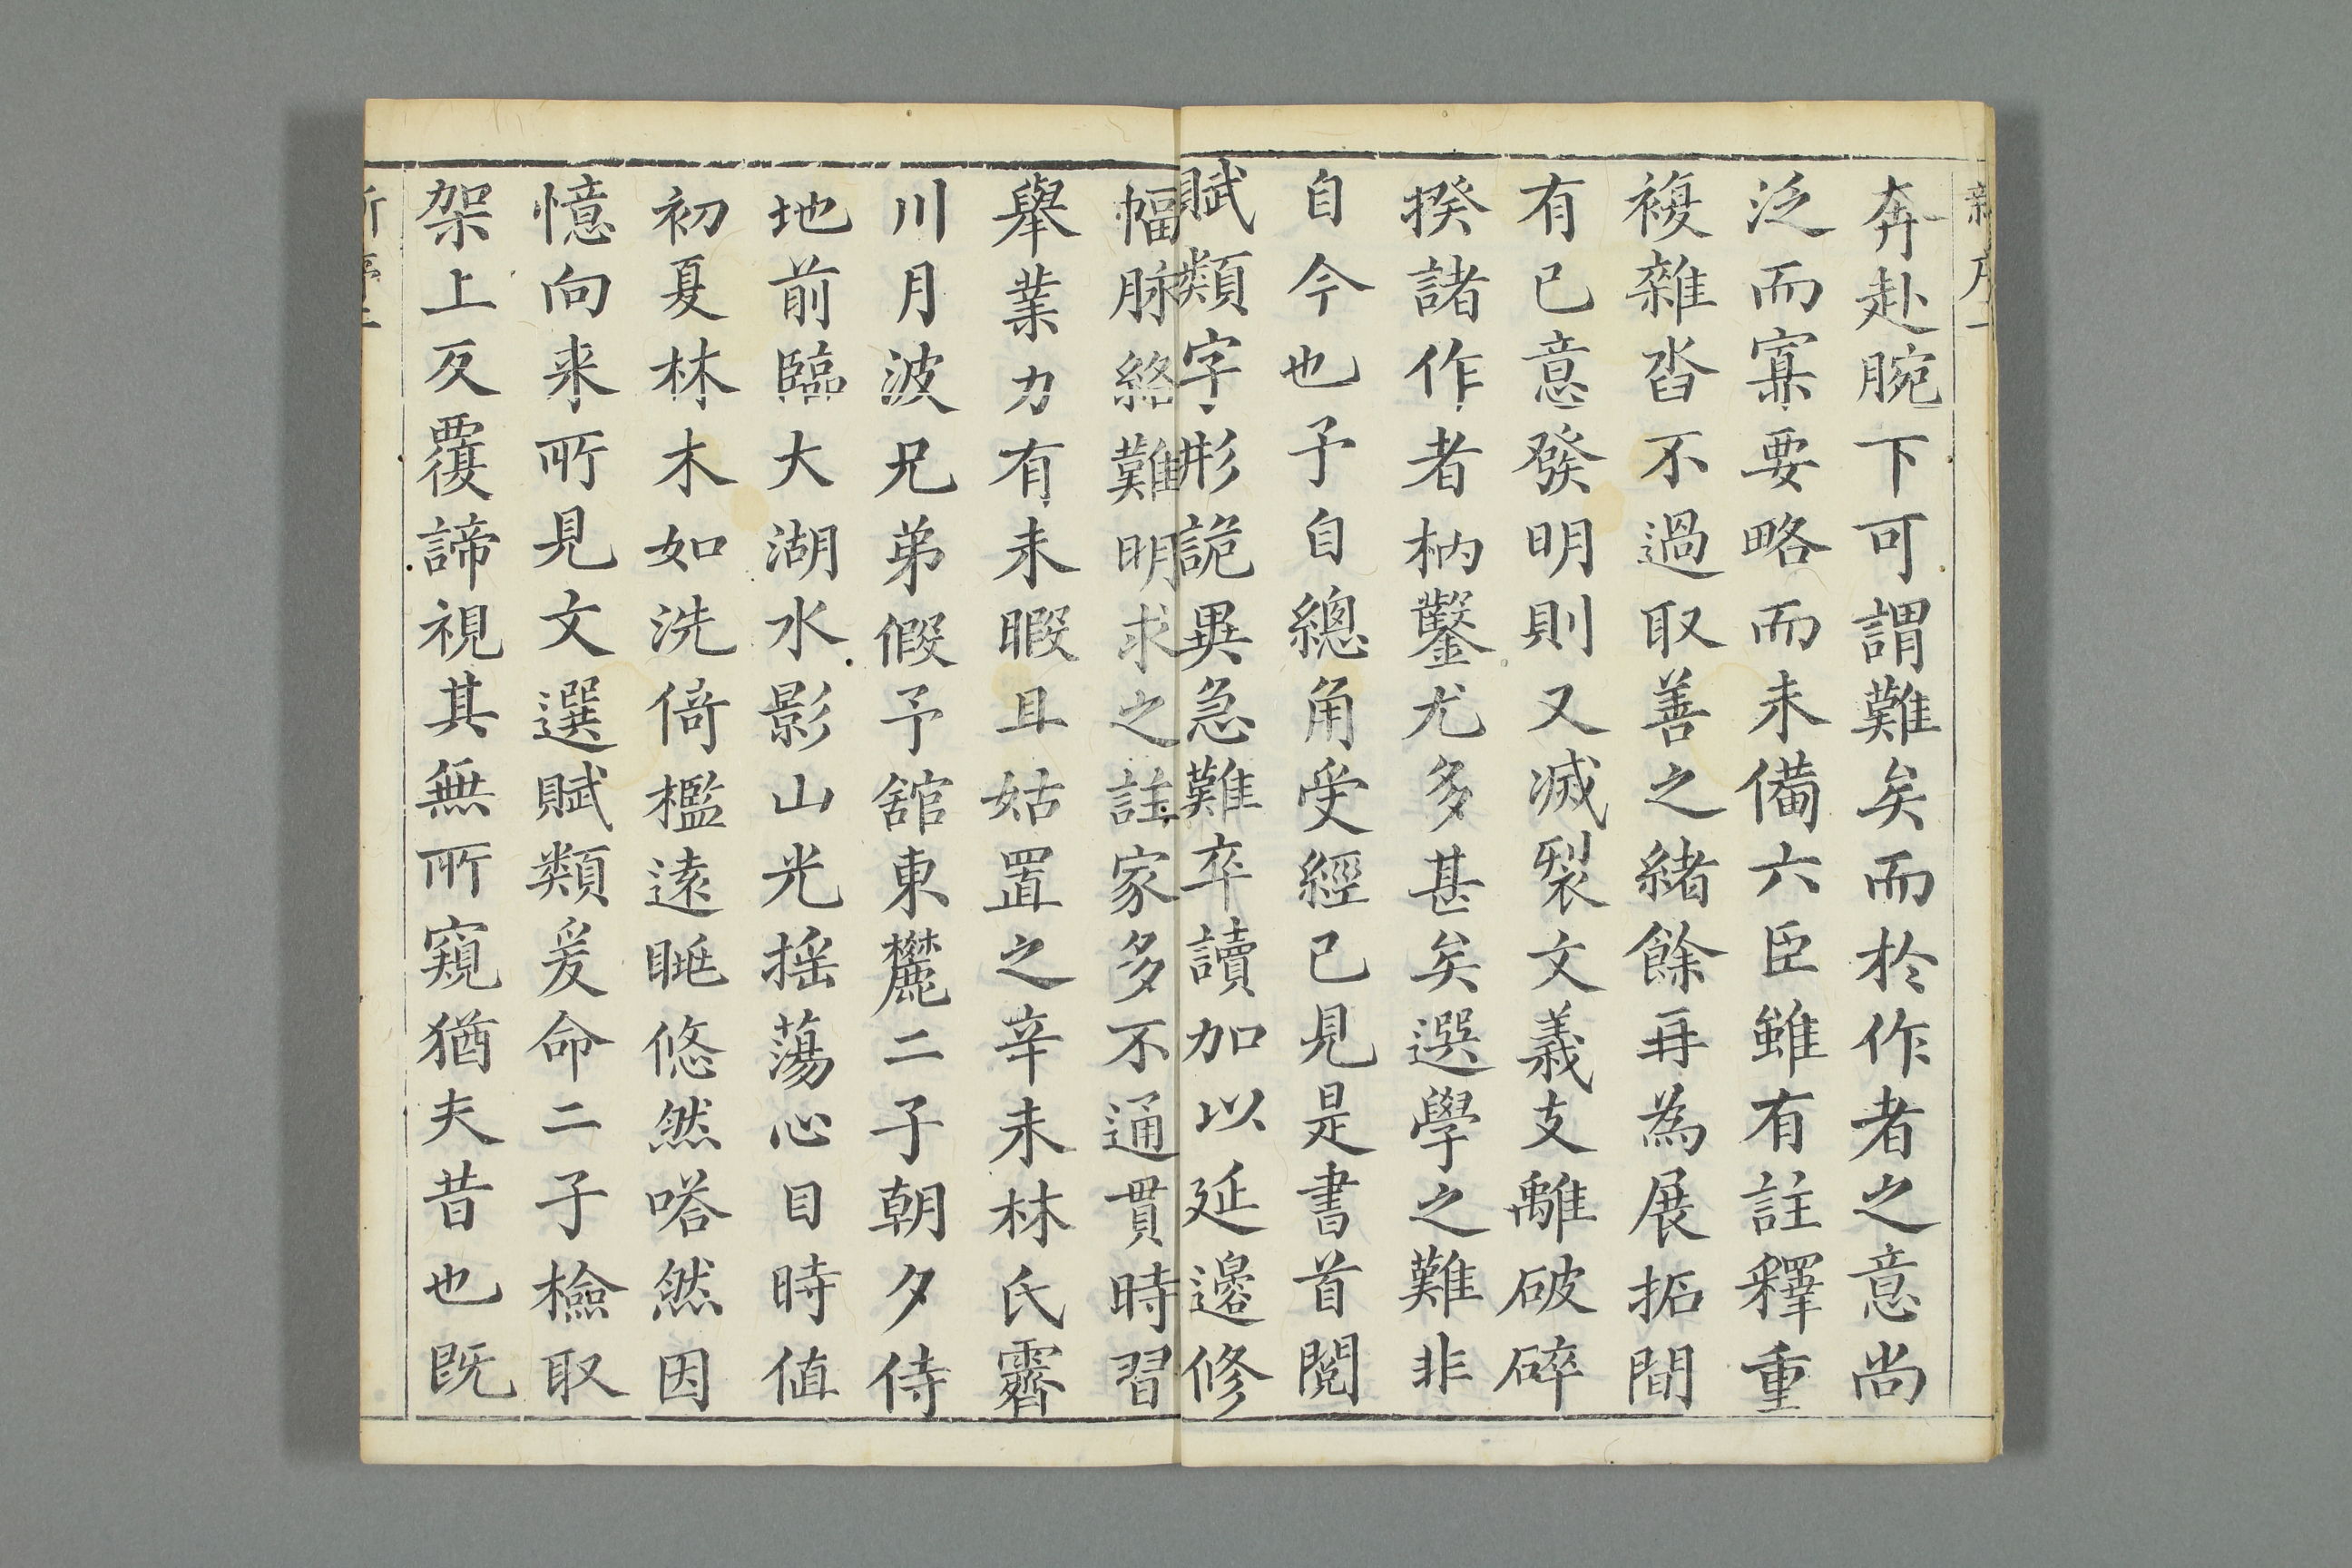 奔赴腕下可謂難矣而於作者之意尚
泛而寡要略而未備六臣雖有註釋重
複雜沓不過取善之緒餘再為展拓間
有已意發明則又滅裂文義支離破碎
揆諸作者枘鑿尤多甚矣選學之難非
自今也予自總角受經已見是書首閱
賦類字形詭異急難卒讀加以延邊修
幅脉絡難明求之註家多不通貫時習
舉業力有未暇且姑置之辛未林氏霽
川月波兄弟假予舘東麓二子朝夕侍
地前臨大湖水影山光搖蕩心目時值
初夏林木如洗倚檻遠眺悠然嗒然因
憶向来所見文選賦類爰命二子檢取
架上反覆諦視其無所窺猶夫昔也既